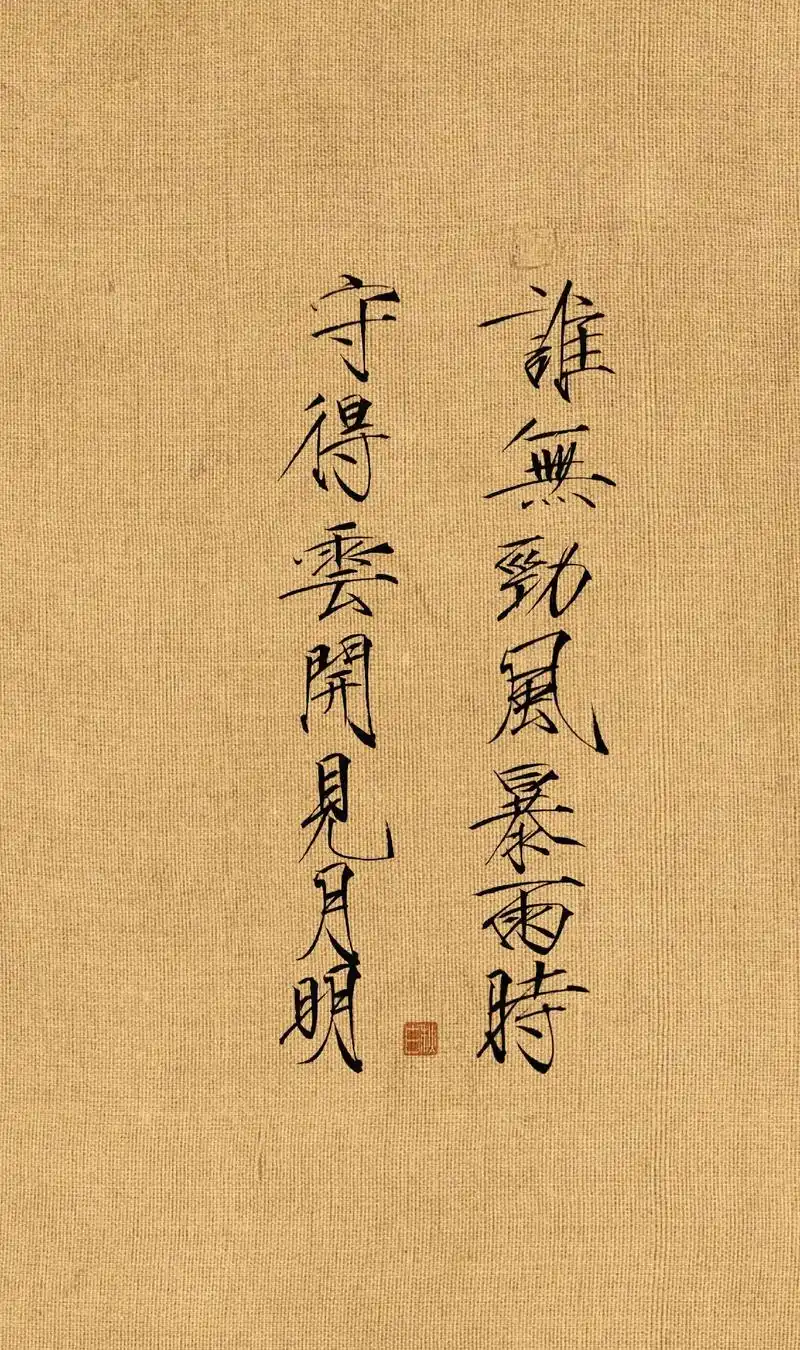 誰無勁風暴雨時
守得雲開見月明